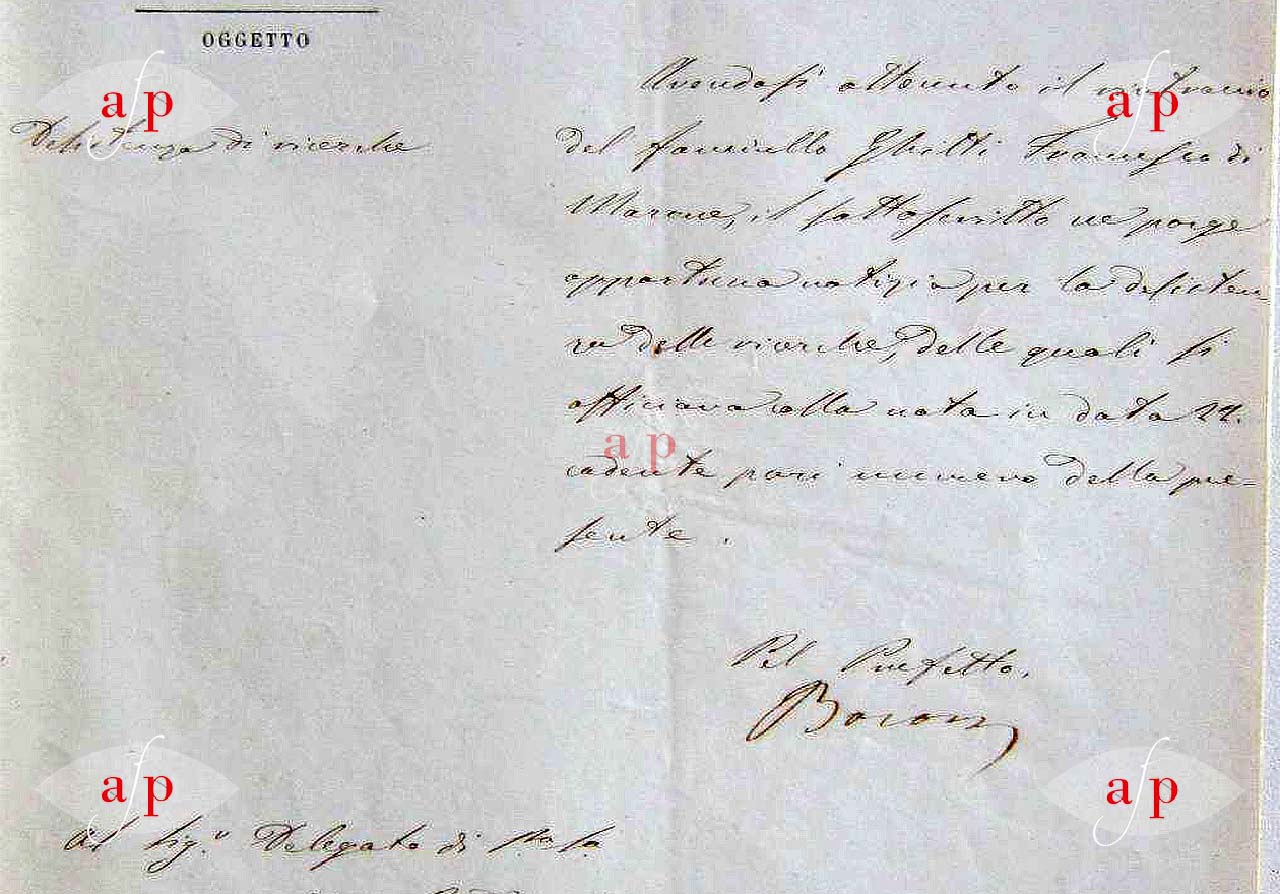 OGGETTO
Desistenza di ricerche
Avendosi ottenuto il rintraccio
del fanciullo Ghitti Francesco di
Marone, il sottoscritto ne porge
opportuna notizia per la desisten-
za delle ricerche, delle quali si
officiava colla nota in data 22.
cadente pari numero della pre-
sente.
Pel Prefetto.
Al Sig.r Delegato di
afp
afp
afp
afp
afp